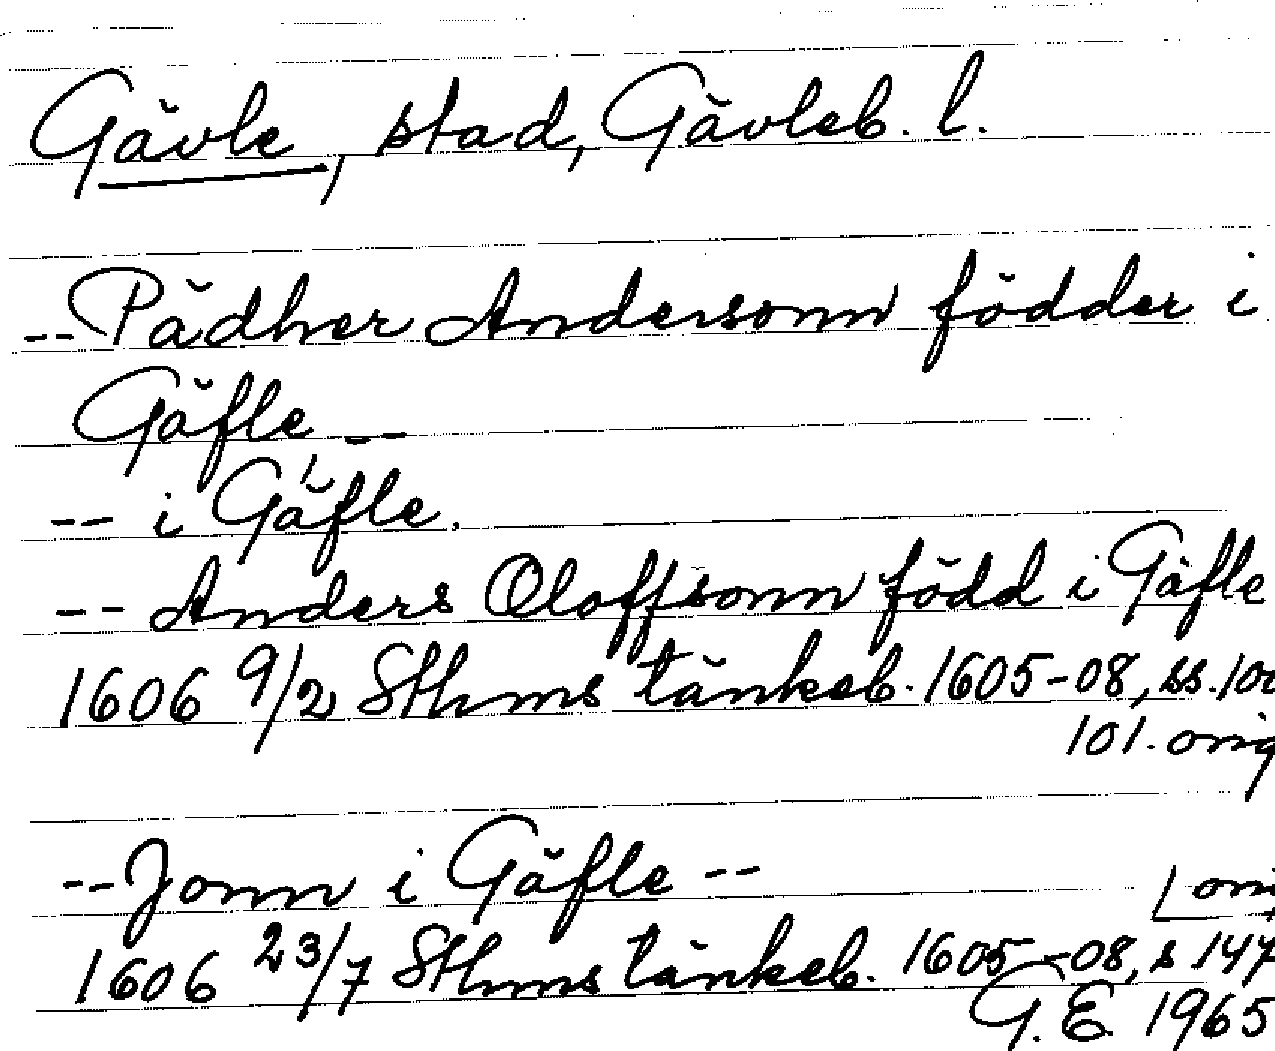 Gävle, stad, Gävleb. l.
-- Pädher Andersonn födder i
Gäfle, --
-- i Gäfle.
-- Anders Oloffsonn född i Gäfle
1606 9/2 Sthms tänkeb. 1605-08, ss. 100
101. orig
-- Jonn i Gäfle --
1606 23/7 Sthms tänkeb. 1605-08, s 147
G. E. 1965